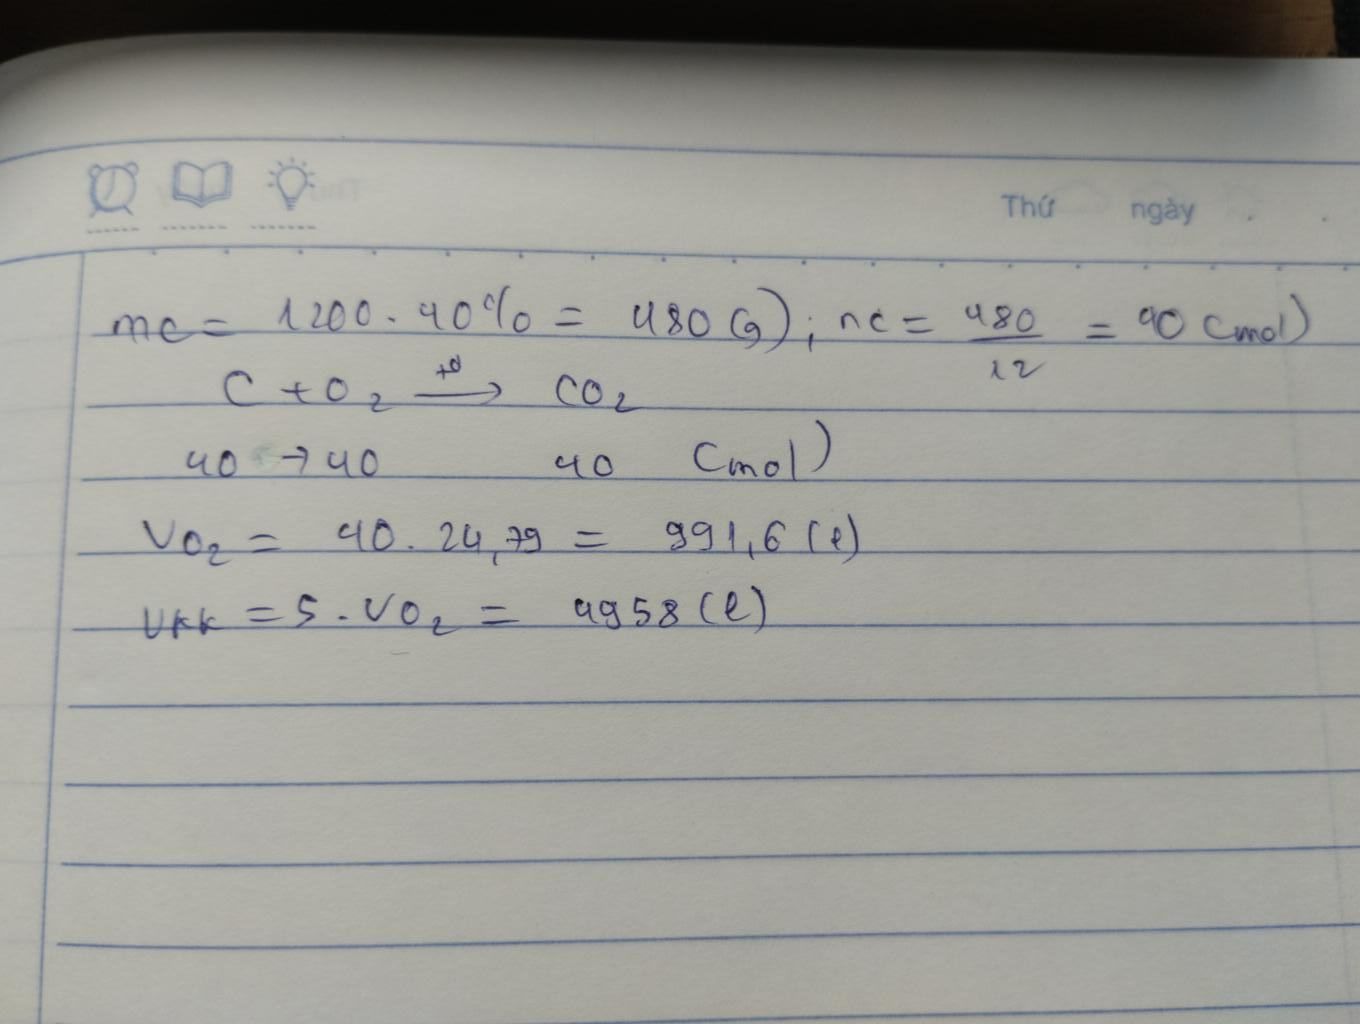 Thứ ngày . .
mc = 1200 . 40% = 480 (g) ; nc = 480/12 = 40 (mol)
C + O₂ →(t°) CO₂
40 → 40 40 (mol)
VO₂ = 40 . 24,79 = 991,6 (l)
Vkk = 5 . VO₂ = 4958 (l)